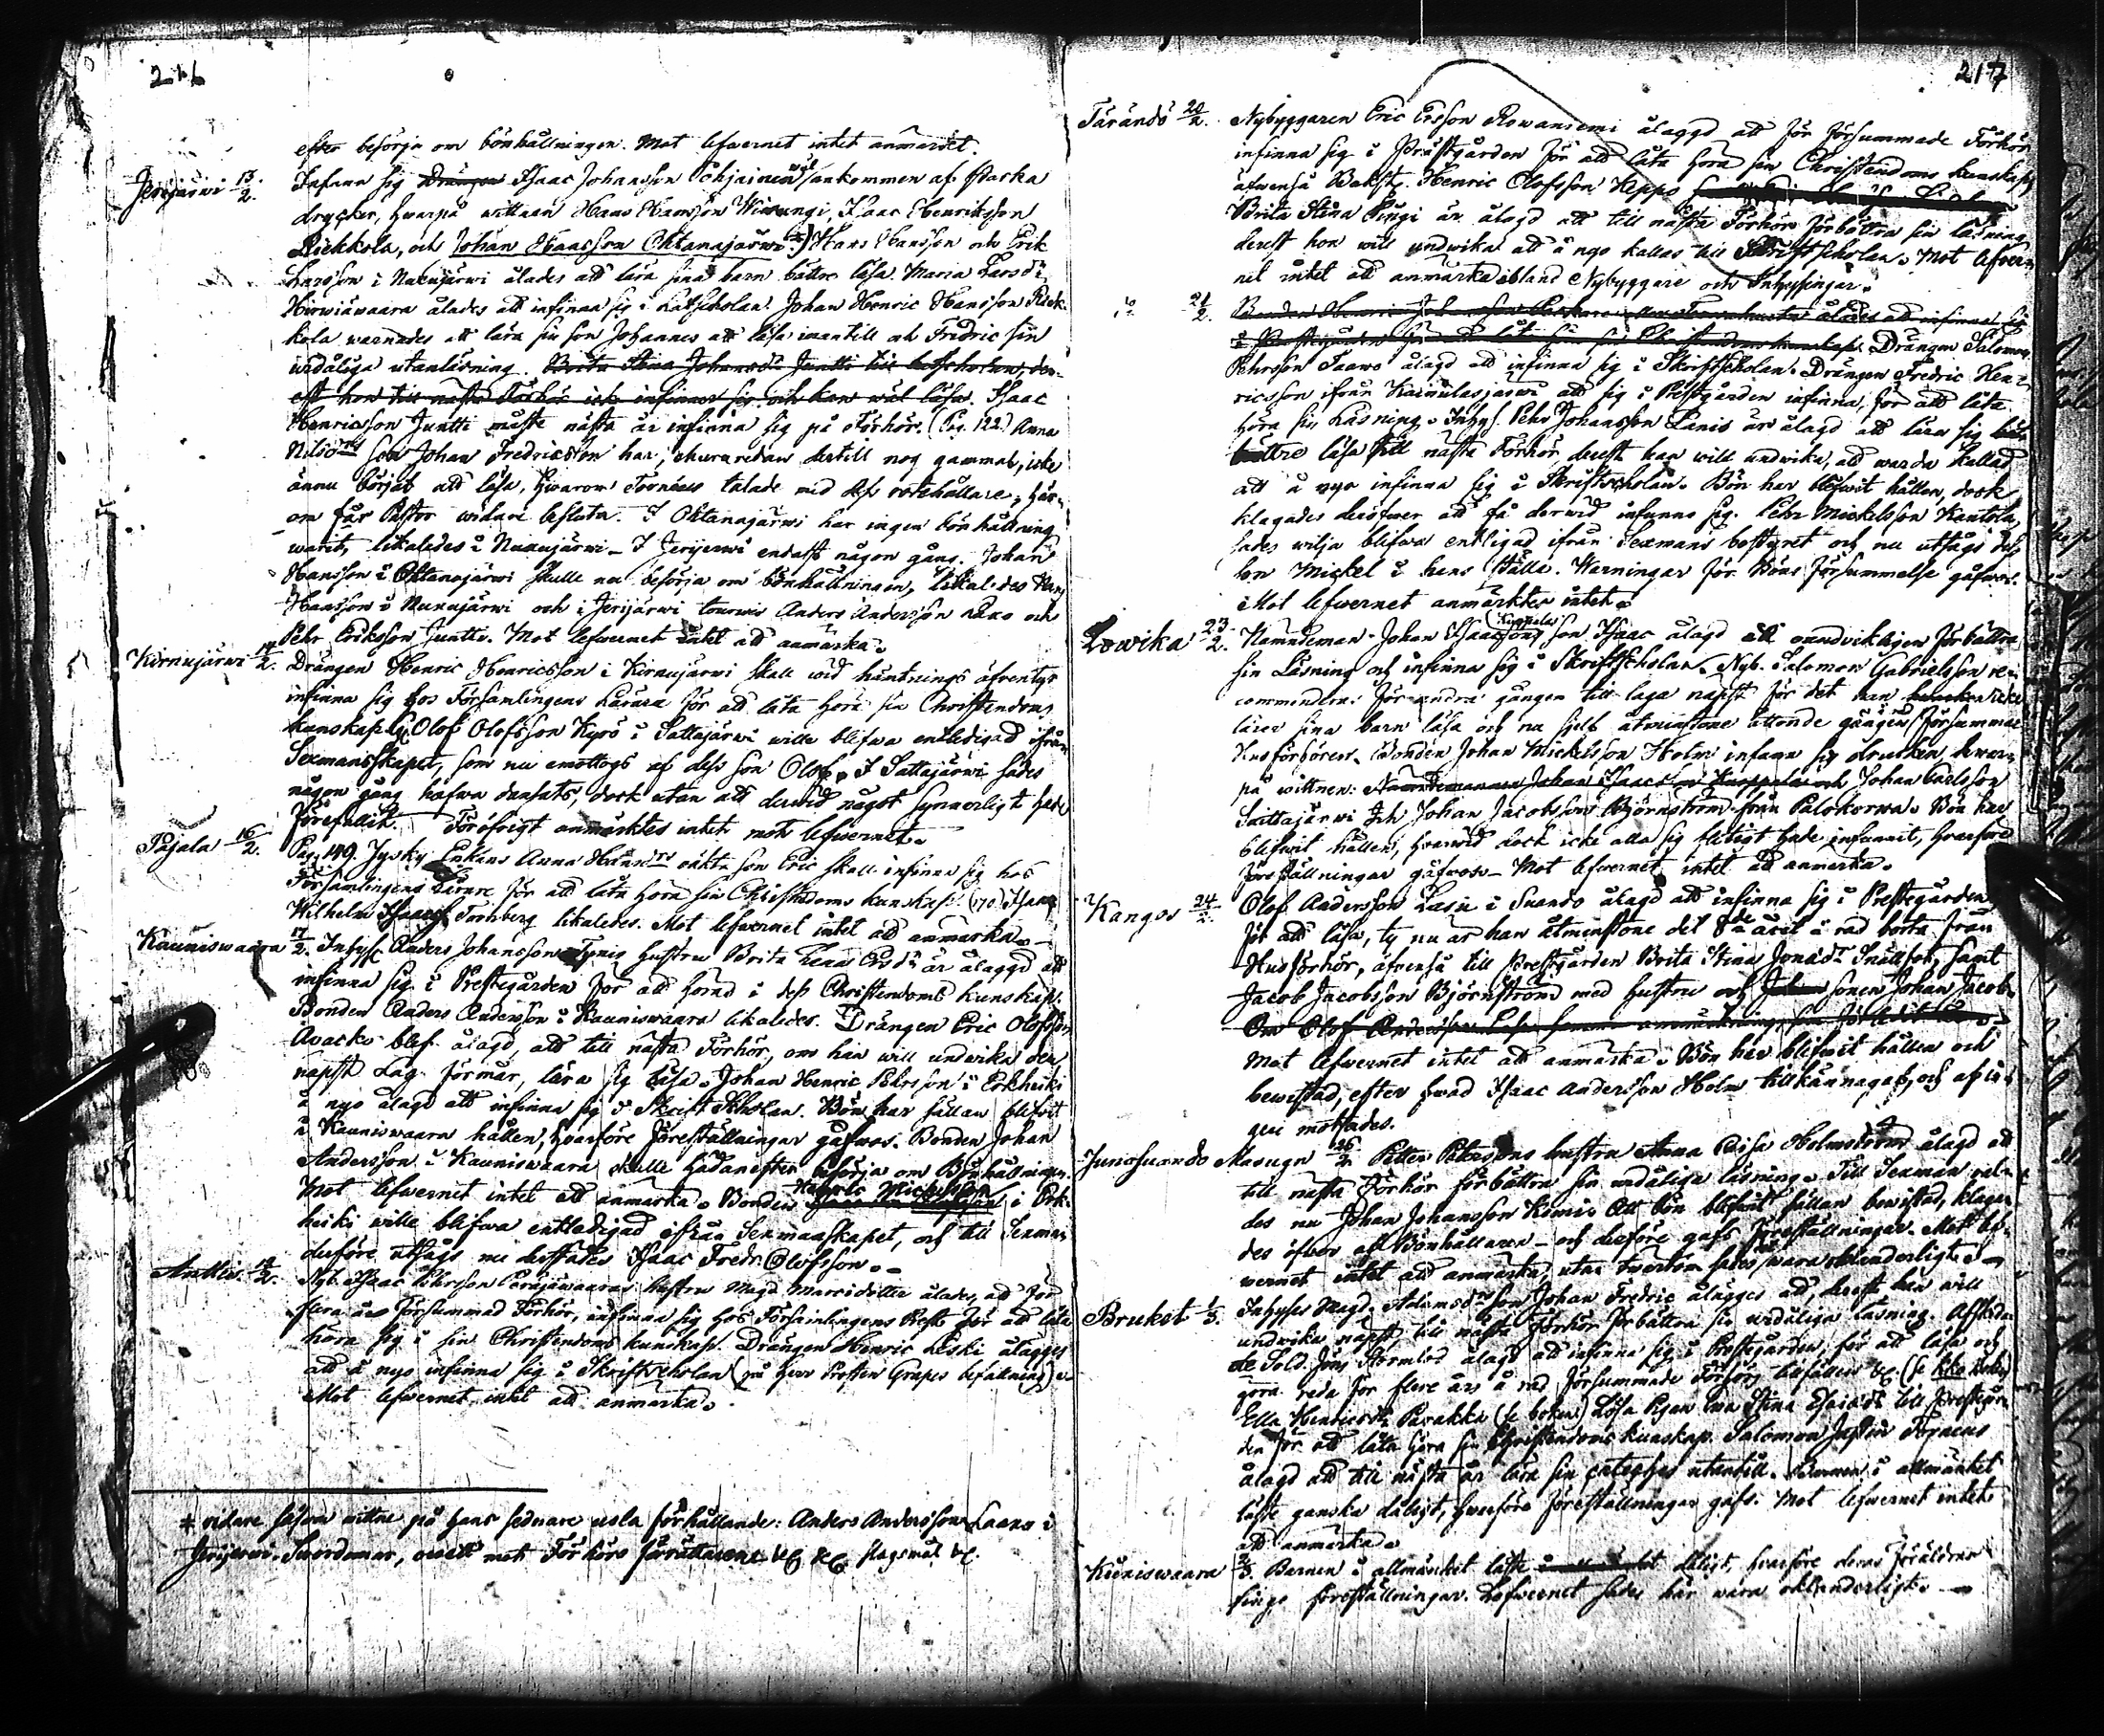 216
efter besörja om bönhållningen. Mot lefwernet intet anmärkt.
Jerijärwi 13/2. Infann sig Drängen Isaac Johansson Pohjainen ankommen af starka
drycker, hwarpå wittnar Hans Hansson Winungi, Isaac Henriksson
Riekkola, och Johan Hansson Ohtanajärwi *) Hans Hansson och Erik
Larsson i Nunujärwi ålades att lära sina barn bättre läsa. Maria Larsdr
Hirwiäwaara ålades att infinna sig i Läsescholan. Johan Henric Hansson Riek-
kola warnades att lära sin son Johannes att läsa innantill och Fredric sin
usdåliga utanläsning. Brita Stina Johansdr Juntti till Läsescholan, der-
est hon till nästa Förhör icke infinner sig och kan wäl läsa. Isaac
Henricsson Juntti måste nästa år infinna sig på Förhör. (Pag. 122) Anna
Nilsdrs son Johan Fredricsson har, ehuru redan dertill nog gammal, icke
ännu börjat att läsa, hwarom Tornéus talade med def rotehållare, här-
om får Pastor widare besluta. I Ohtanajärwi har ingen bönhållning
warit, likaledes i Nunujärwi - I Jerijerwi endast någon gång. Johan
Hansson i Ohtanajärwi skulle nu besörja om bönhållningen, likaledes Hans
Hansson i Nunujärwi och i Jerijärwi tourwis Anders Andersson Laxo och
Pehr Eriksson Juntti. Mot lefwernet intet att anmärka.
Kirnujärwi 14/2. Drängen Henric Henricsson i Kirnujärwi skall wid häktnings äfwentyr
infinna sig hos Församlingens Lärare för att låta höra sin Christendoms
kunskap. Olof Olofsson Kyrö i Sattajärwi wille blifwa entledigad ifrån
Sexmansskapet, som nu emottogs af dess son Olof. I Sattajärwi sades
någon gång hafwa dansats, dock utan att derwid något synnerligt hade
förefallit. Föröfrigt anmärktes intet mot lefwernet.
Pajala 16/2. Pag. 149. Jysky Enkans Anna Hansdrs oäkta son Eric skall infinna sig hos
Församlingens Lärare för att låta höra sin Christendoms kunskap. (170) Isaac
Wilhelm Isaacss. Tornberg likaledes. Mot lefwernet intet att anmärka. -
Kauniswaara 17/2. Inhyss. Anders Johansson Tynis hustru Brita Lena Ersdr är ålaggd att
infinna sig i Prestegården för att hörd i dess Christendoms kunskap.
Bonden Anders Andersson i Kauniswaara likaledes. Drängen Eric Olofsson
Awacko blef ålagd, att till nästa Förhör, om han will undwika den
näpst Lag förmår, lära sig läsa. Johan Henric Pehrsson i Erkheiki
å nyo ålagd att infinna sig i Skrift Scholan. Bön har sällan blifwit
i Kauniswaara hållen, hwarföre föreställningar gåfwos. Bonden Johan
Andersson i Kauniswaara skulle hädanefter besörja om Bönhållningen.
Mot lefwernet intet att anmärka. Bonden Mickelsson i Erk-
heiki wille blifwa entledigad ifrån Sexmansskapet, och till Sexman
derföre utsågs nu derstädes Isaac Fredr. Olofsson. -
Anttis 18/2. Nyb. Isaac Pehrsson Peräjäwaaras hustru Magd. Marcidotter ålades, att för
flera års försummad Förhör, infinna sig hos Församlingens Prest för att låta
höra sig i sin Christendoms kunskap. Drängen Henric Liski ålägges
att å nyo infinna sig i Skriftscholan (på Herr Prosten Grapes befallning).
Mot lefwernet intet att anmärka.
* widare såsom wittne på hans sednare usla förhållande: Anders Andersson Laaxo i
Jerijerwi. Swordomar, owett mot Förhörs förrättarene &c &c slagsmål &c.
217
Tärändö 20/2. Nybyggaren Eric Ersson Rowaniemi ålaggd att för försummade Förhör
infinna sig i Prästgården för att låta höra sin Christendoms kunskap,
äfwenså Bakstg. Henric Olofsson Keppo
Brita Stina Pingi är ålagd att till nästa Förhör förbättra sin läsning
derest hon will undwika att å nyo kallas till Skriftscholan. Mot lefwer-
net intet att anmärka ibland Nybyggare och Inhysingar.
21/2. Bonden Henric Johansson ålades att infinna sig
i Prestegården för att låta höra sin Christendoms kunskap. Drängen Salomon
Pehrsson Taawo ålagd att infinna sig i Skriftscholan. Drängen Fredric Hen-
ricsson ifrån Kainulasjärwi att sig i Prestgården infinna, för att låta
höra sin Läsning. Inhys. Pehr Johansson Linis är ålagd att lära sig
bättre läsa till nästa Förhör derest han will undwika, att warda kallad
att å nyo infinna sig i Skriftscholan. Bön har blifwit hållen, dock
klagades deröfwer att få derwid infunno sig. Pehr Mickelsson Kantola,
sades wilja blifwa entledigad ifrån Sexmans bestyret och nu utsågs dess
son Mickel i hans ställe. Warningar för Böns försummelse gåfwos.
Mot lefwernet anmärktes intet.
Lowika 23/2. Nämndeman Johan Isaacssons Kieppelä son Isaac ålagd att oundvikligen förbättra
sin Läsning och infinna sig i Skriftscholan. Nyb. Salomon Gabrielsson re-
commendera. för andra gången till laga näpst för det han icke
lärer sina barn läsa och nu sjelf åtminstone åttonde gången försummat
Husförhören. Bonden Johan Mickelsson Holm infann sig drucken hwar-
på wittnen: Nämndemannen Johan Isaacsson Kieppelä och Johan Carlsson
Saittajärwi och Johan Jacobsson Björnström från Palokorwa. Bön har
blifwit hållen, hwarwid dock icke alla sig flitigt hade infunnit, hwarföre
föreställningar gåfwos. - Mot lefwernet intet att anmärka.
Kangos 24/2. Olof Andersson Lasu i Suando ålagd att infinna sig i Prestegården
för att läsa, ty nu är han åtminstone det 8de året å rad borta från
Husförhör, äfwenså till Prestgården Brita Stina Jonædr Snällfot, samt
Jacob Jacobsson Björnström med hustru och Johan sonen Johan Jacob.
Om Olof Andersson Lasu samma anmärkning som
Mot lefwernet intet att anmärka. Bön har blifwit hållen och
bewistad, efter hwad Isaac Andersson Holm tillkännagaf, och af in-
gen motsades.
Junosuando Masugn 26/2. Petter Pehrssons hustru Anna Caisa Holmström ålagd att
till nästa Förhör förbättra sin usdåliga läsning. Till Sexman val-
des nu Johan Johansson Kimis. Att bön blifwit sällan bewistad, klaga-
des öfwer af Bönhållaren - och derföre gafs föreställningar. Mot lef-
wernet intet att anmärka, utan twertom sades wara oklanderligt. -
Bruket 1/3. Inhyses Magd. Adamsdrs son Johan Fredric ålägges att, derest han will
undwika näpst till nästa Förhör förbättra sin usdåliga läsning. Afskeda-
de Sold. Jöns Stormlod ålagd att infinna sig i Prestegården, för att läsa och
göra reda för flere års å rad försummade Förhör, tillfällen &c. (se
Ella Henricsdr Parakka (se boken) Lösa Pigan Ewa Stina Esaiædr till Prestegår-
den för att låta höra sin Christendoms kunskap. Salomon Josefin Foræus
ålagd att till nästa år lära sin cateches utantill. Barnen i allmänhet
läste ganska dåligt, hwarföre föreställningar gafs. Mot lefwernet intet
att anmärka.
Küniswaara 2/3. Barnen i allmänhet läste dåligt, hwarföre deras föräldrar
fingo föreställningar. Lefwernet sades här wara oklanderligt. -